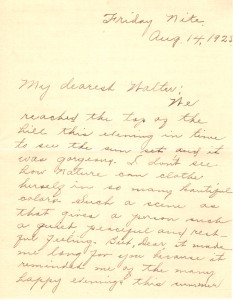 Friday Nite.
Aug 14, 192
My dearest Walter:
We
reached the top of the
hill this evening in time
to see the sun set and it
was gorgeous. I don't see
how nature can clothe
herself in so many beautiful
colors. Such a scene as
that gives a person such
a quiet peaceful and rest-
ful feeling. But, dear it made
me long for you because it
reminded me of the many
happy evenings this summer